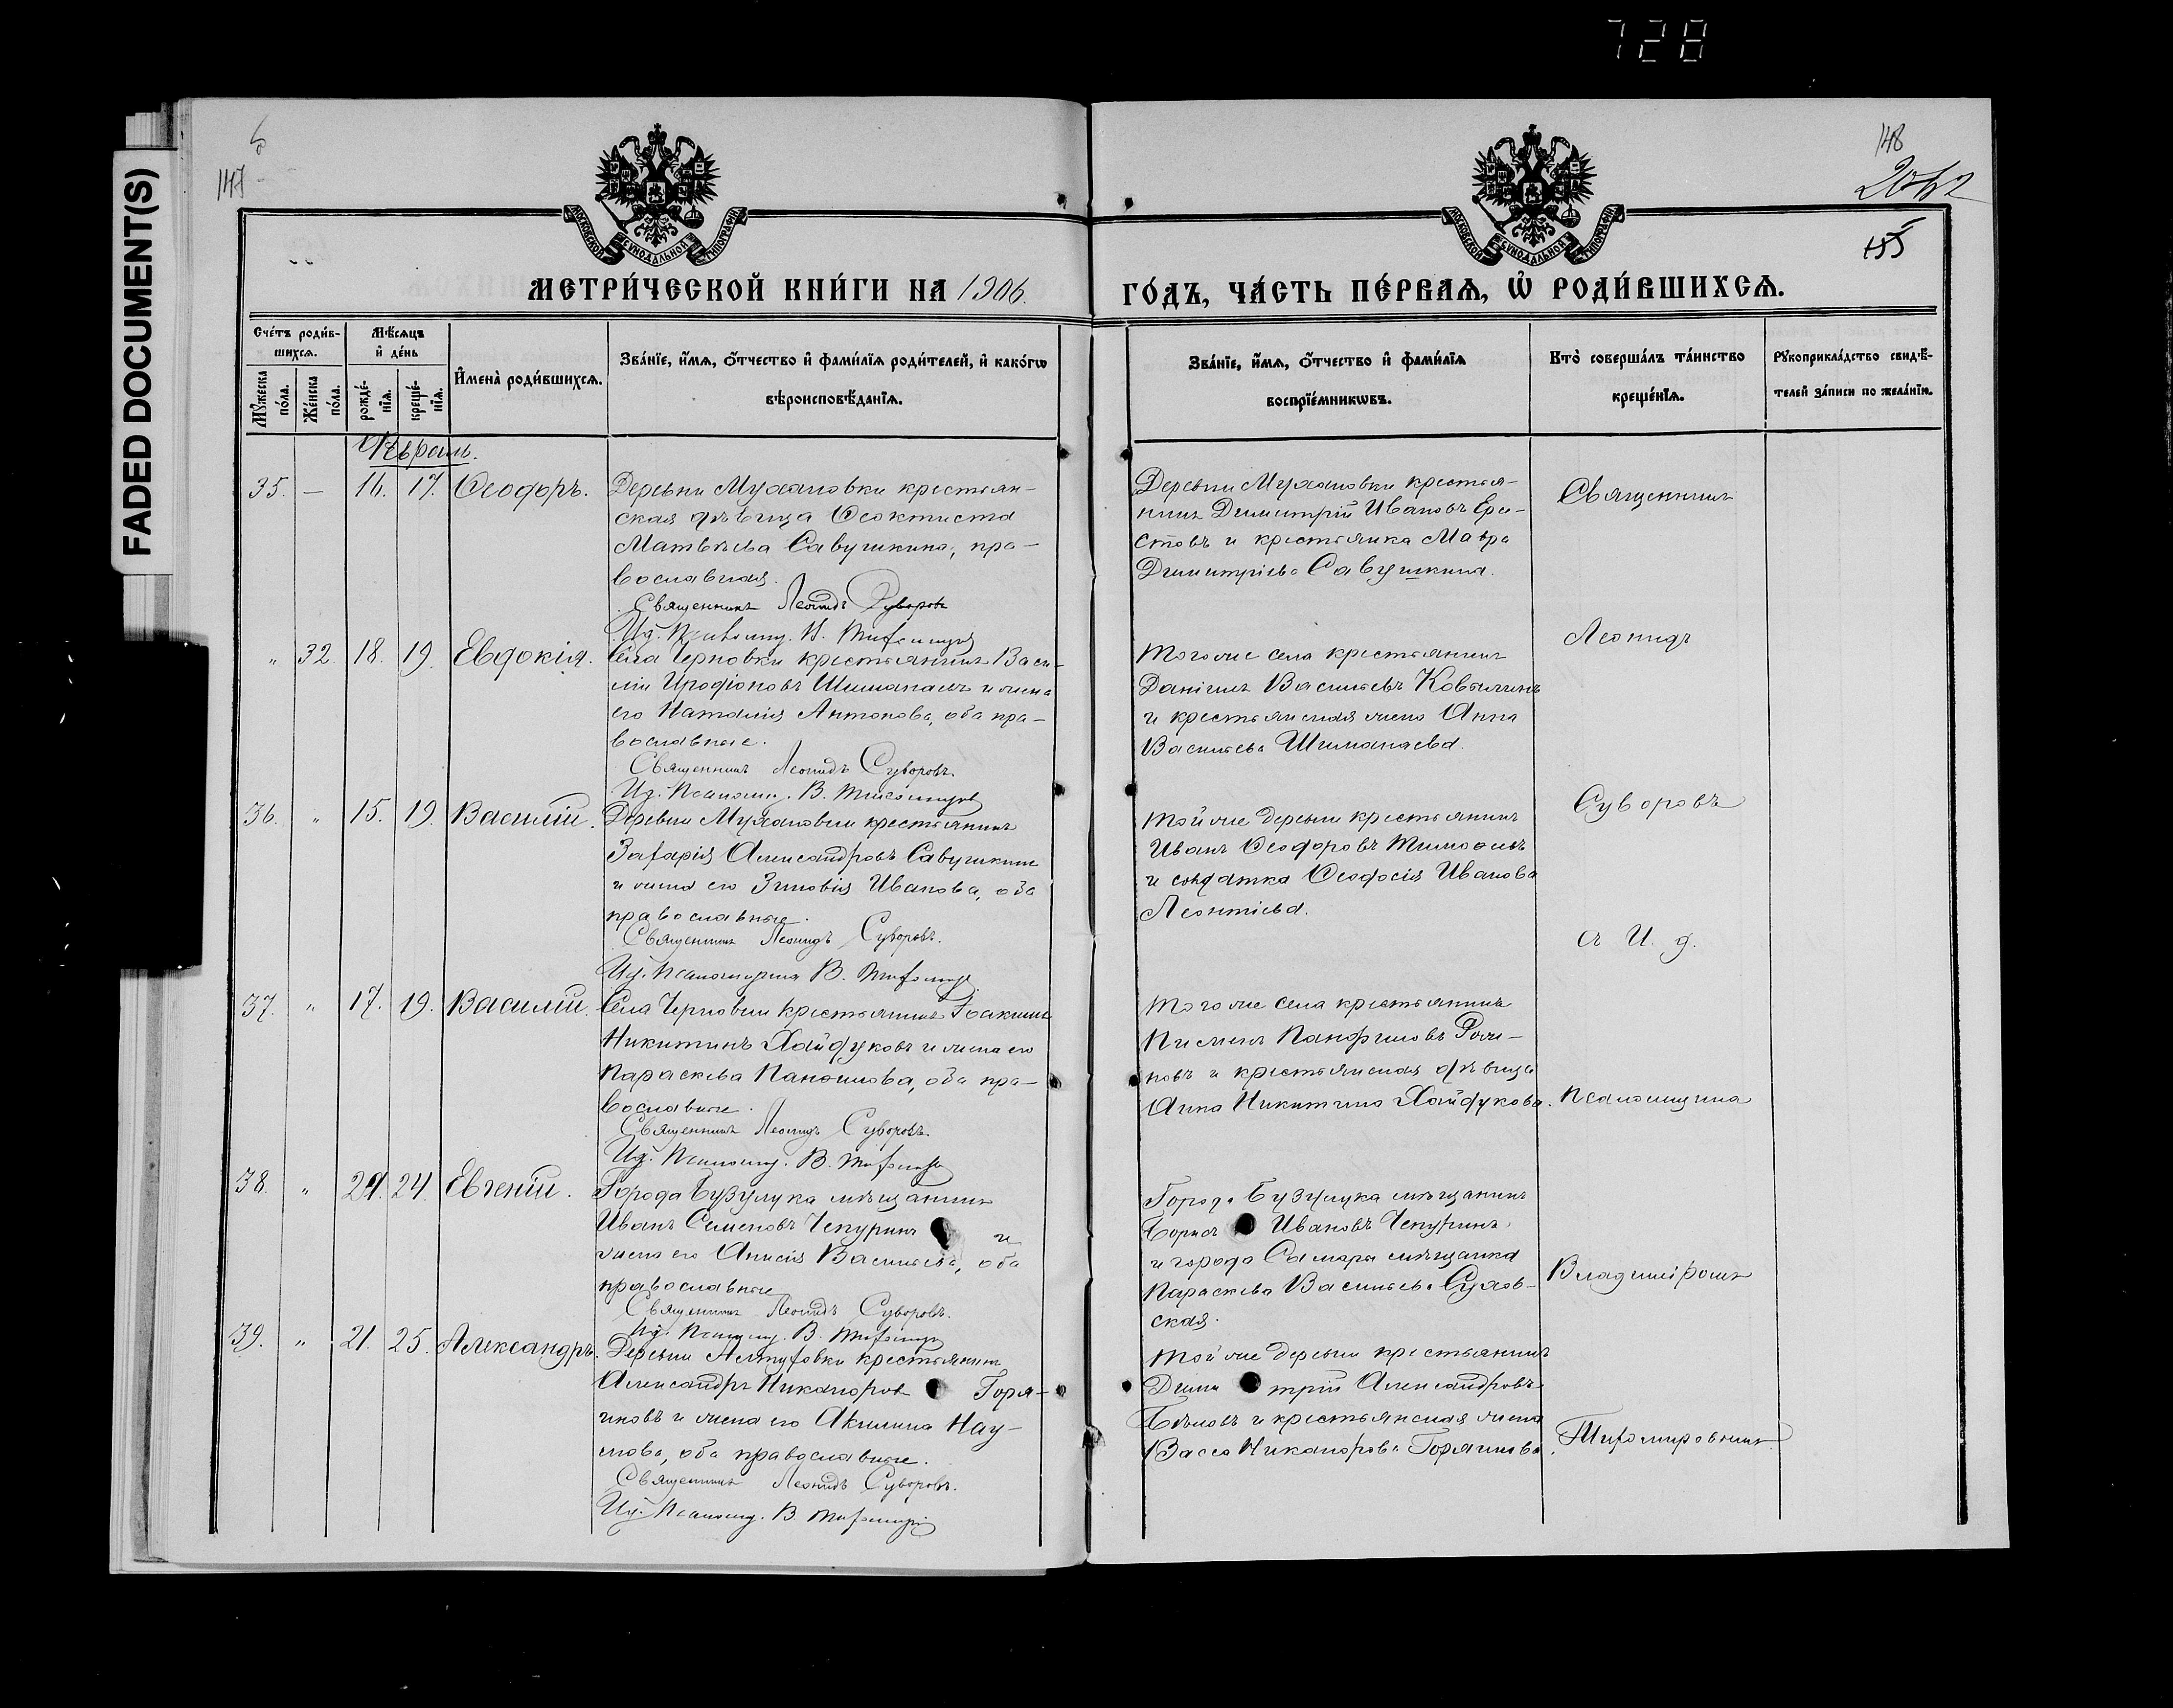 728
FADED DOCUMENT(S)
147
148
155
МОСКОВСКОЙ СѴНОДАЛЬНОЙ ТИПОГРАФІИ
МОСКОВСКОЙ СѴНОДАЛЬНОЙ ТИПОГРАФІИ
МЕТРИ́ЧЕСКОЙ КНИ́ГИ НА 1906.
ГО́ДЪ, ЧА́СТЬ ПЕ́РВАѦ, Ѡ҆ РОДИ́ВШИХСѦ.
Сче́тъ роди́в-
шихсѧ.
Мѣ́сѧцъ
и҆ де́нь
И҆мена̀ роди́вшихсѧ.
Зва́нїе, и҆́мѧ, ѻ҆́тчество и҆ фами́лїѧ роди́телей, и҆ како́гѡ
вѣроисповѣ́данїѧ.
Мꙋ́жеска
по́ла.
Же́нска
по́ла.
рожде́-
нїѧ.
креще́-
нїѧ.
Зва́нїе, и҆́мѧ, ѻ҆́тчество и҆ фами́лїѧ
воспрїе́мникѡвъ.
Кто̀ соверша́лъ та́инство
креще́нїѧ.
Рꙋкоприкла́дство свидѣ́-
телей за́писи по жела́нїю.
Февраль.
35. — 16. 17. Ѳеодоръ.
Деревни Мухановки крестьян-
ская дѣвица Ѳеоктиста
Матвѣева Савушкина, пра-
вославная.
Священникъ Леонидъ Суворовъ
Деревни Мухановки крестья-
нинъ Димитрій Ивановъ Ери-
стовъ и крестьянка Мавра
Димитріева Савушкина.
Священникъ
" 32 18. 19. Евдокія.
Села Черновки крестьянинъ Васи-
лій Иродіоновъ Шиманаевъ и жена
его Наталія Антонова, оба пра-
вославные.
Священникъ Леонидъ Суворовъ.
Того же села крестьянинъ
Даніилъ Васильевъ Ковылинъ
и крестьянская жена Анна
Васильева Шиманаева.
Леонидъ
36. " 15. 19. Василій.
Деревни Мухановки крестьянинъ
Захарія Александровъ Савушкинъ
и жена его Зиновія Иванова, оба
православные.
Священникъ Леонидъ Суворовъ.
Той же деревни крестьянинъ
Иванъ Ѳеодоровъ Тимоѳеевъ
и солдатка Ѳеодосія Иванова
Леонтіева.
Суворовъ
съ И. д.
37. " 17. 19. Василій.
Села Черновки крестьянинъ Іоакимъ
Никитинъ Хайдуковъ и жена его
Параскева Панфилова, оба пра-
вославные.
Священникъ Леонидъ Суворовъ.
Того же села крестьянинъ
Пименъ Панфиловъ Роди-
новъ и крестьянская дѣвица
Анна Никитина Хайдукова.
Псаломщика
38. " 24. 24. Евгеній.
Города Бузулука мѣщанинъ
Иванъ Семеновъ Чепуринъ и
жена его Анисія Васильева, оба
православные
Священникъ Леонидъ Суворовъ.
Города Бузулука мѣщанинъ
Борисъ Ивановъ Чепуринъ
и города Самары мѣщанка
Параскева Васильева Сухов-
ская.
Владиміромъ
39. " 21. 25. Александръ.
Деревни Алтуховки крестьянинъ
Александръ Никаноровъ Горя-
иновъ и жена его Акилина Нау-
мова, оба православные.
Священникъ Леонидъ Суворовъ.
Той же деревни крестьянинъ
Димитрій Александровъ
Бѣловъ и крестьянская жена
Васса Никанорова Горяинова.
Тихомировымъ